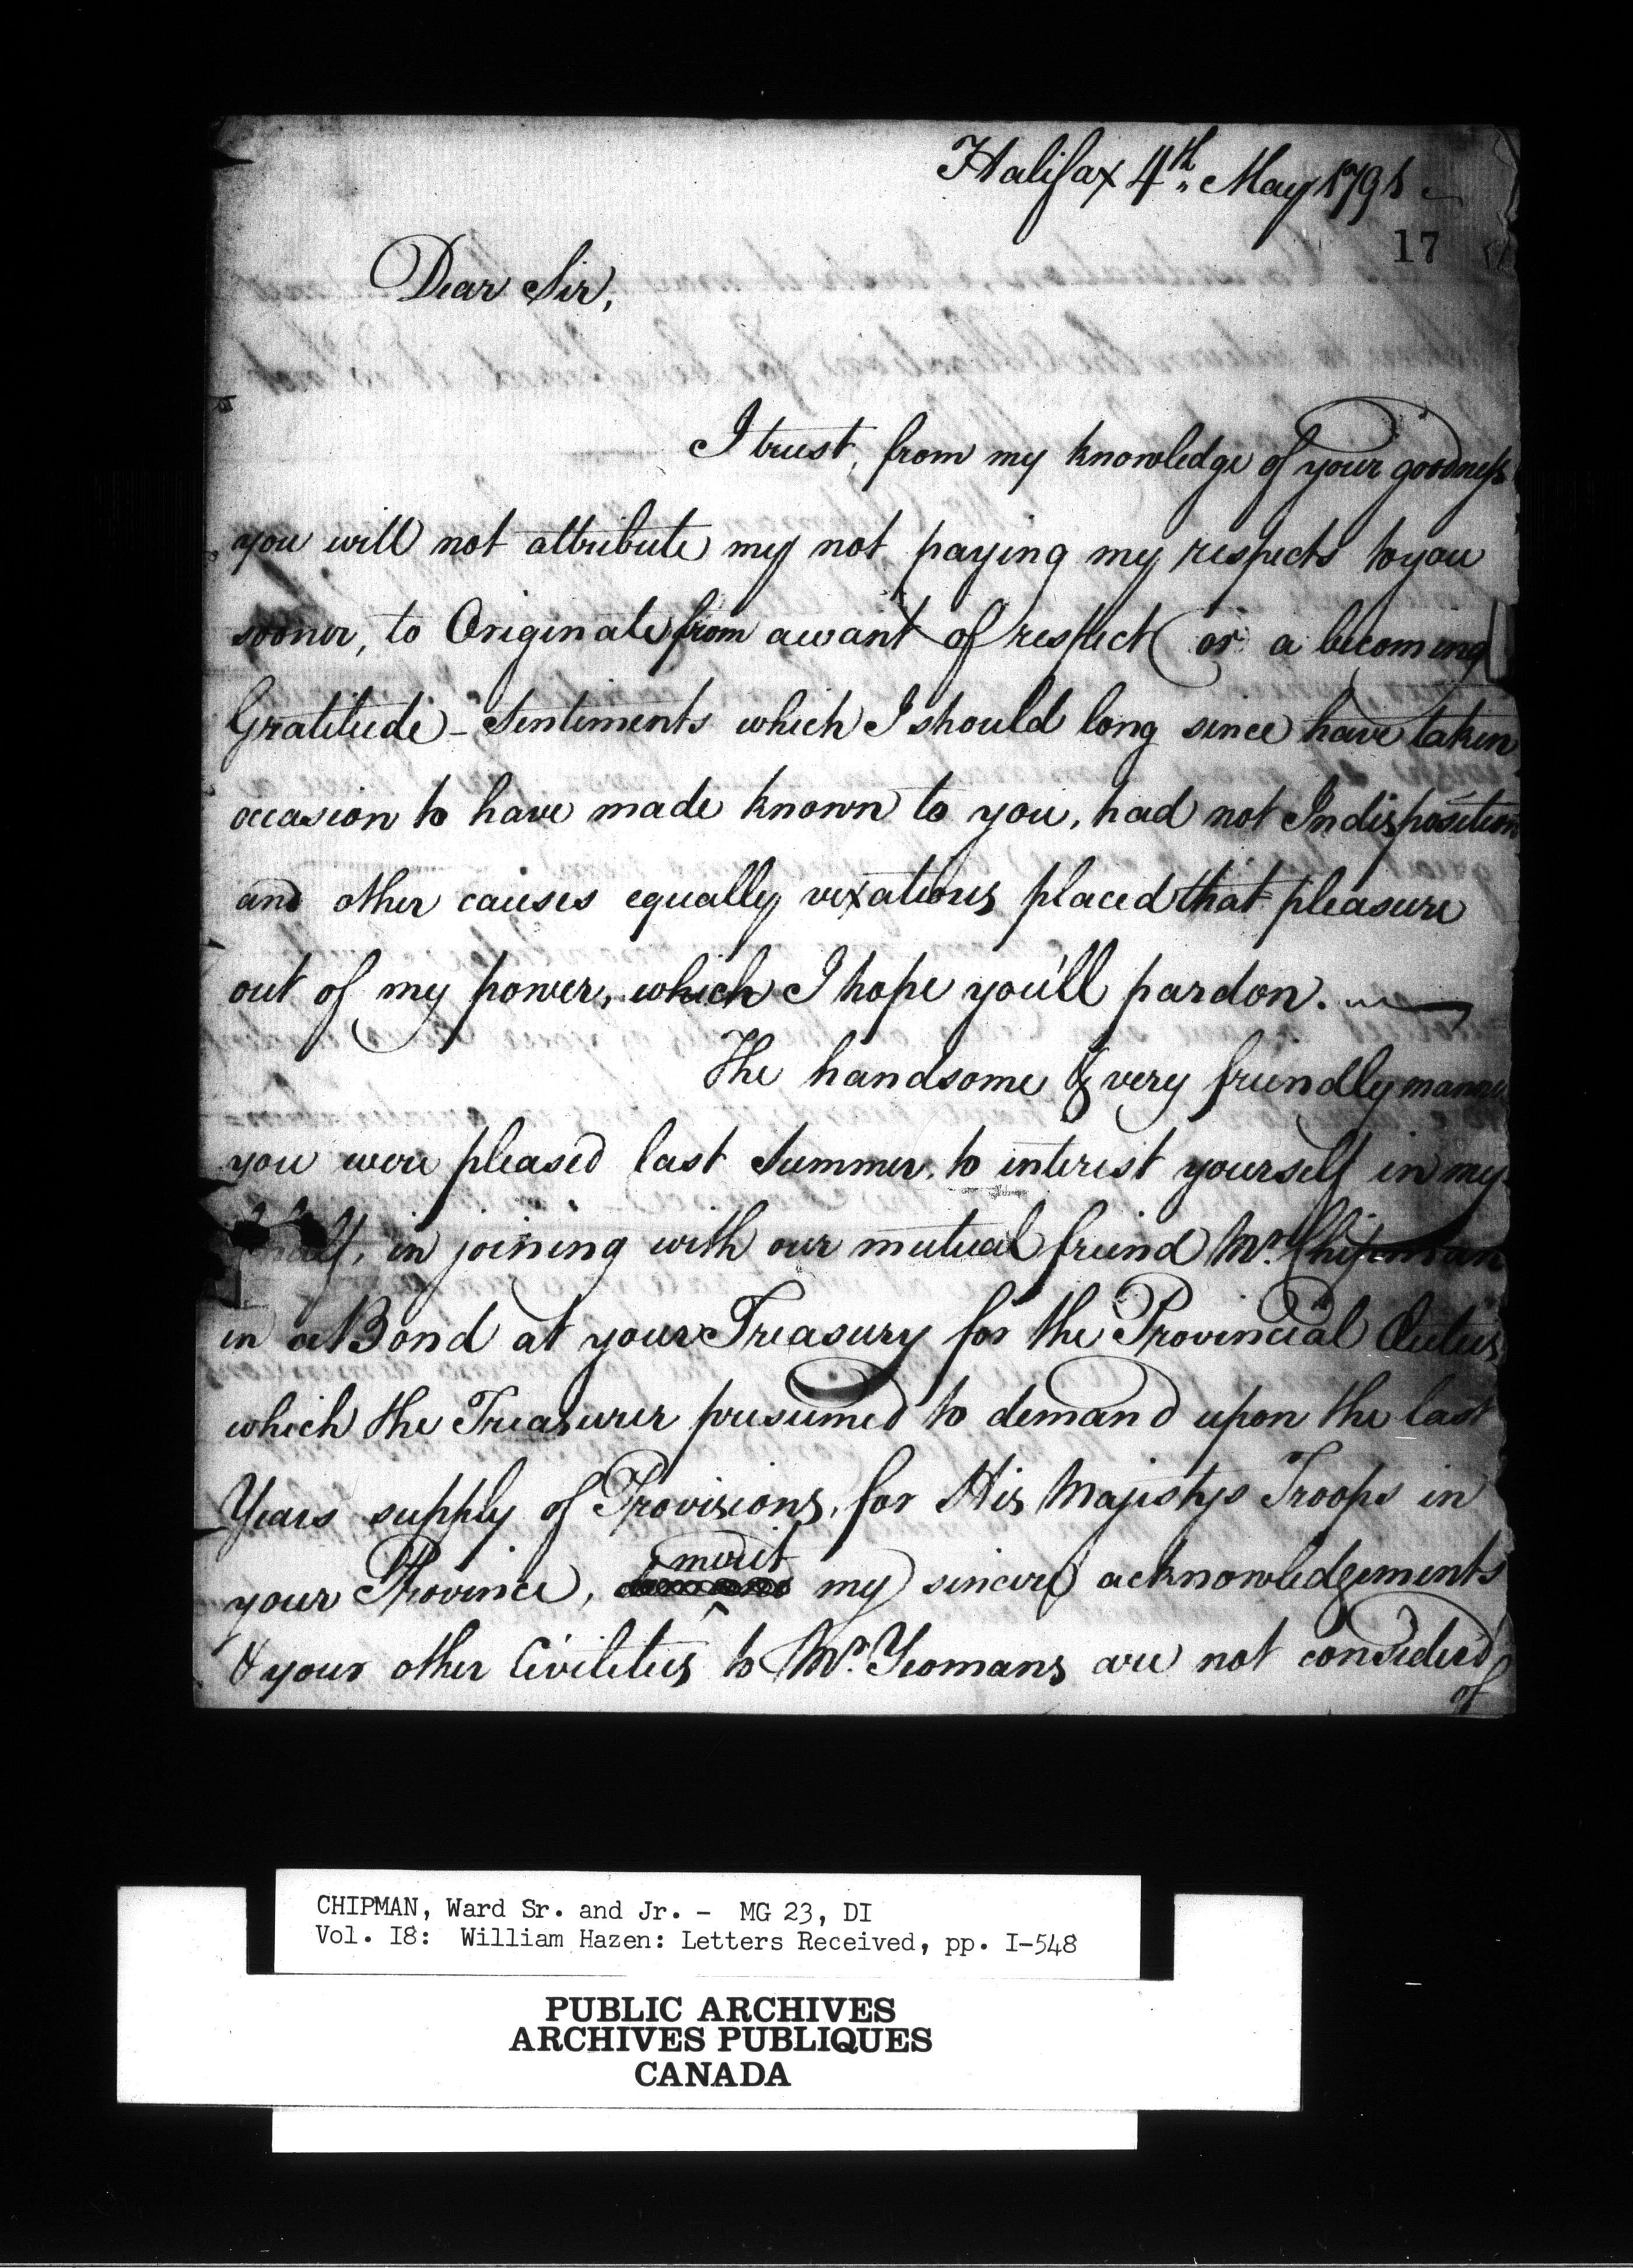 Halifax 4th. May 1791
17
Dear Sir,
I trust, from my knowledge of your goodness
you will not attribute my not paying my respects to you
sooner, to Originate from a want of respect or a becoming
Gratitude - Sentiments which I should long since have taken
occasion to have made known to you, had not Indisposition
and other causes equally vexatious placed that pleasure
out of my power, which I hope you'll pardon.
The handsome & very friendly manner
you were pleased last Summer, to interest yourself in my
in joining with our mutual friend Mr. Chipman
in a Bond at your Treasury for the Provincial Duties
which the Treasurer presumed to demand upon the last
Years supply of Provisions, for His Majestys Troops in
merit
your Province, my sincere acknowledgements
& your other Civilities to Mr. Yeomans are not consider'd
of
CHIPMAN, Ward Sr. and Jr. - MG 23, DI
Vol. I8: William Hazen: Letters Received, pp. I-548
PUBLIC ARCHIVES
ARCHIVES PUBLIQUES
CANADA